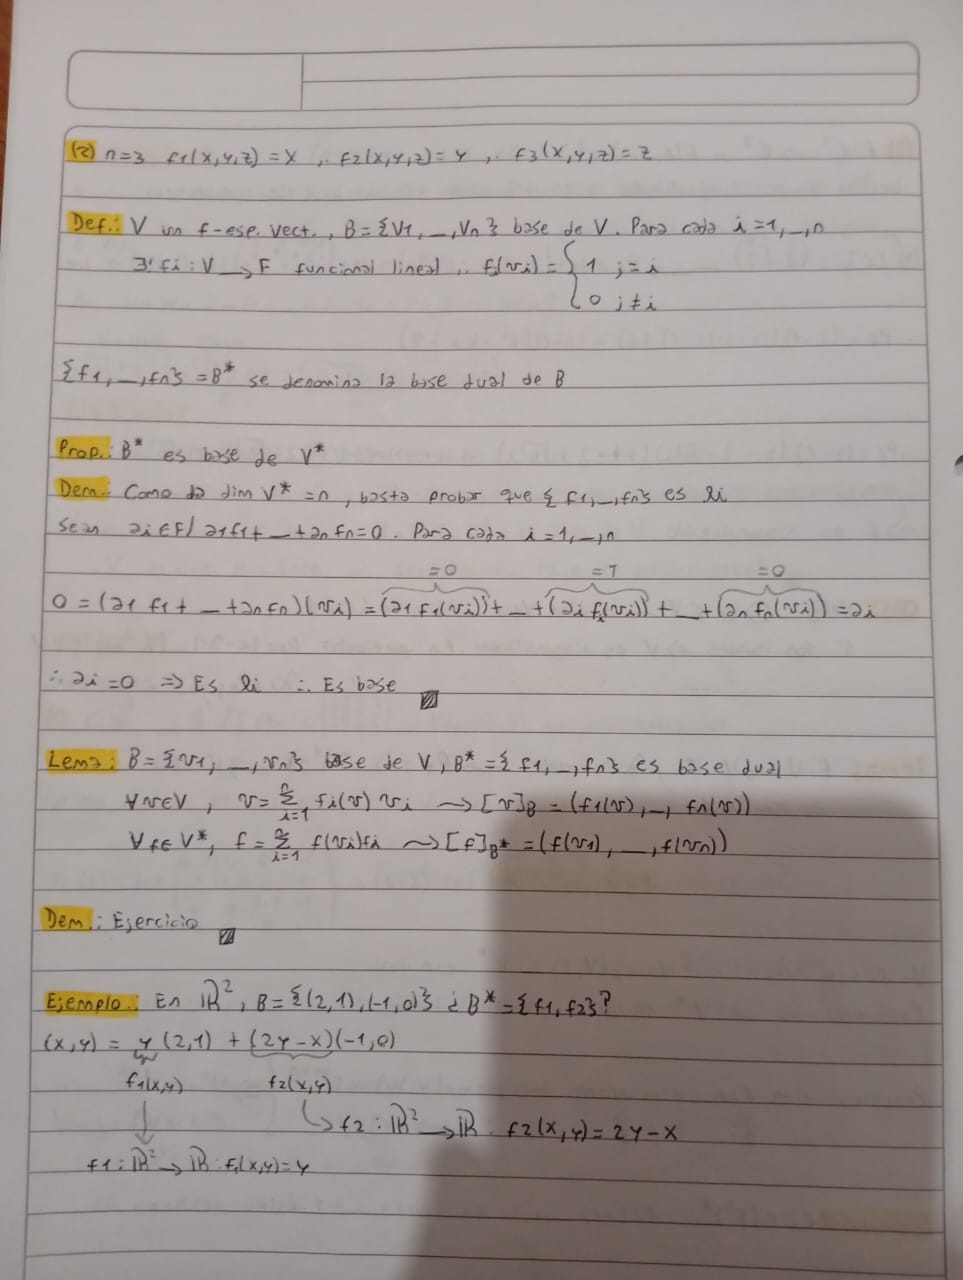 (2) n=3 f1(x,y,z)=x ,. f2(x,y,z)=y ,. f3(x,y,z)=z
Def.: V un f-esp. vect., B={v1, _, vn} base de V. Para cada i=1,_,n
∃! fi: V → F funcional lineal ,. fi(vj) = { 1 j=i
0 j≠i
{f1,_,fn} = B* se denomina la base dual de B
Prop.: B* es base de V*
Dem.: Como da dim V* =n, basta probar que {f1,_,fn} es li
Sean ai∈F/ a1f1+ _ +an fn=0. Para cada i=1,_,n
=0 =1 =0
0 = (a1 f1+ _ +an fn)(vi) = (a1 f1(vi)) + _ + (ai fi(vi)) + _ + (an fn(vi)) = ai
∴ ai=0 ⇒ Es li ∴ Es base
Lema: B={v1, _, vn} base de V, B* ={f1,_,fn} es base dual
∀v∈V, v= Σ i=1 n fi(v) vi ⇝ [v]B = (f1(v),_, fn(v))
∀f∈V*, f= Σ i=1 n f(vi)fi ⇝ [f]B* =(f(v1), _, f(vn))
Dem.: Ejercicio
Ejemplo.: En ℝ², B={(2,1),(-1,0)} ¿ B* ={f1,f2}?
(x,y) = y (2,1) + (2y-x)(-1,0)
f1(x,y) f2(x,y)
f2: ℝ² → ℝ. f2(x,y)=2y-x
f1: ℝ² → ℝ. f1(x,y)=y